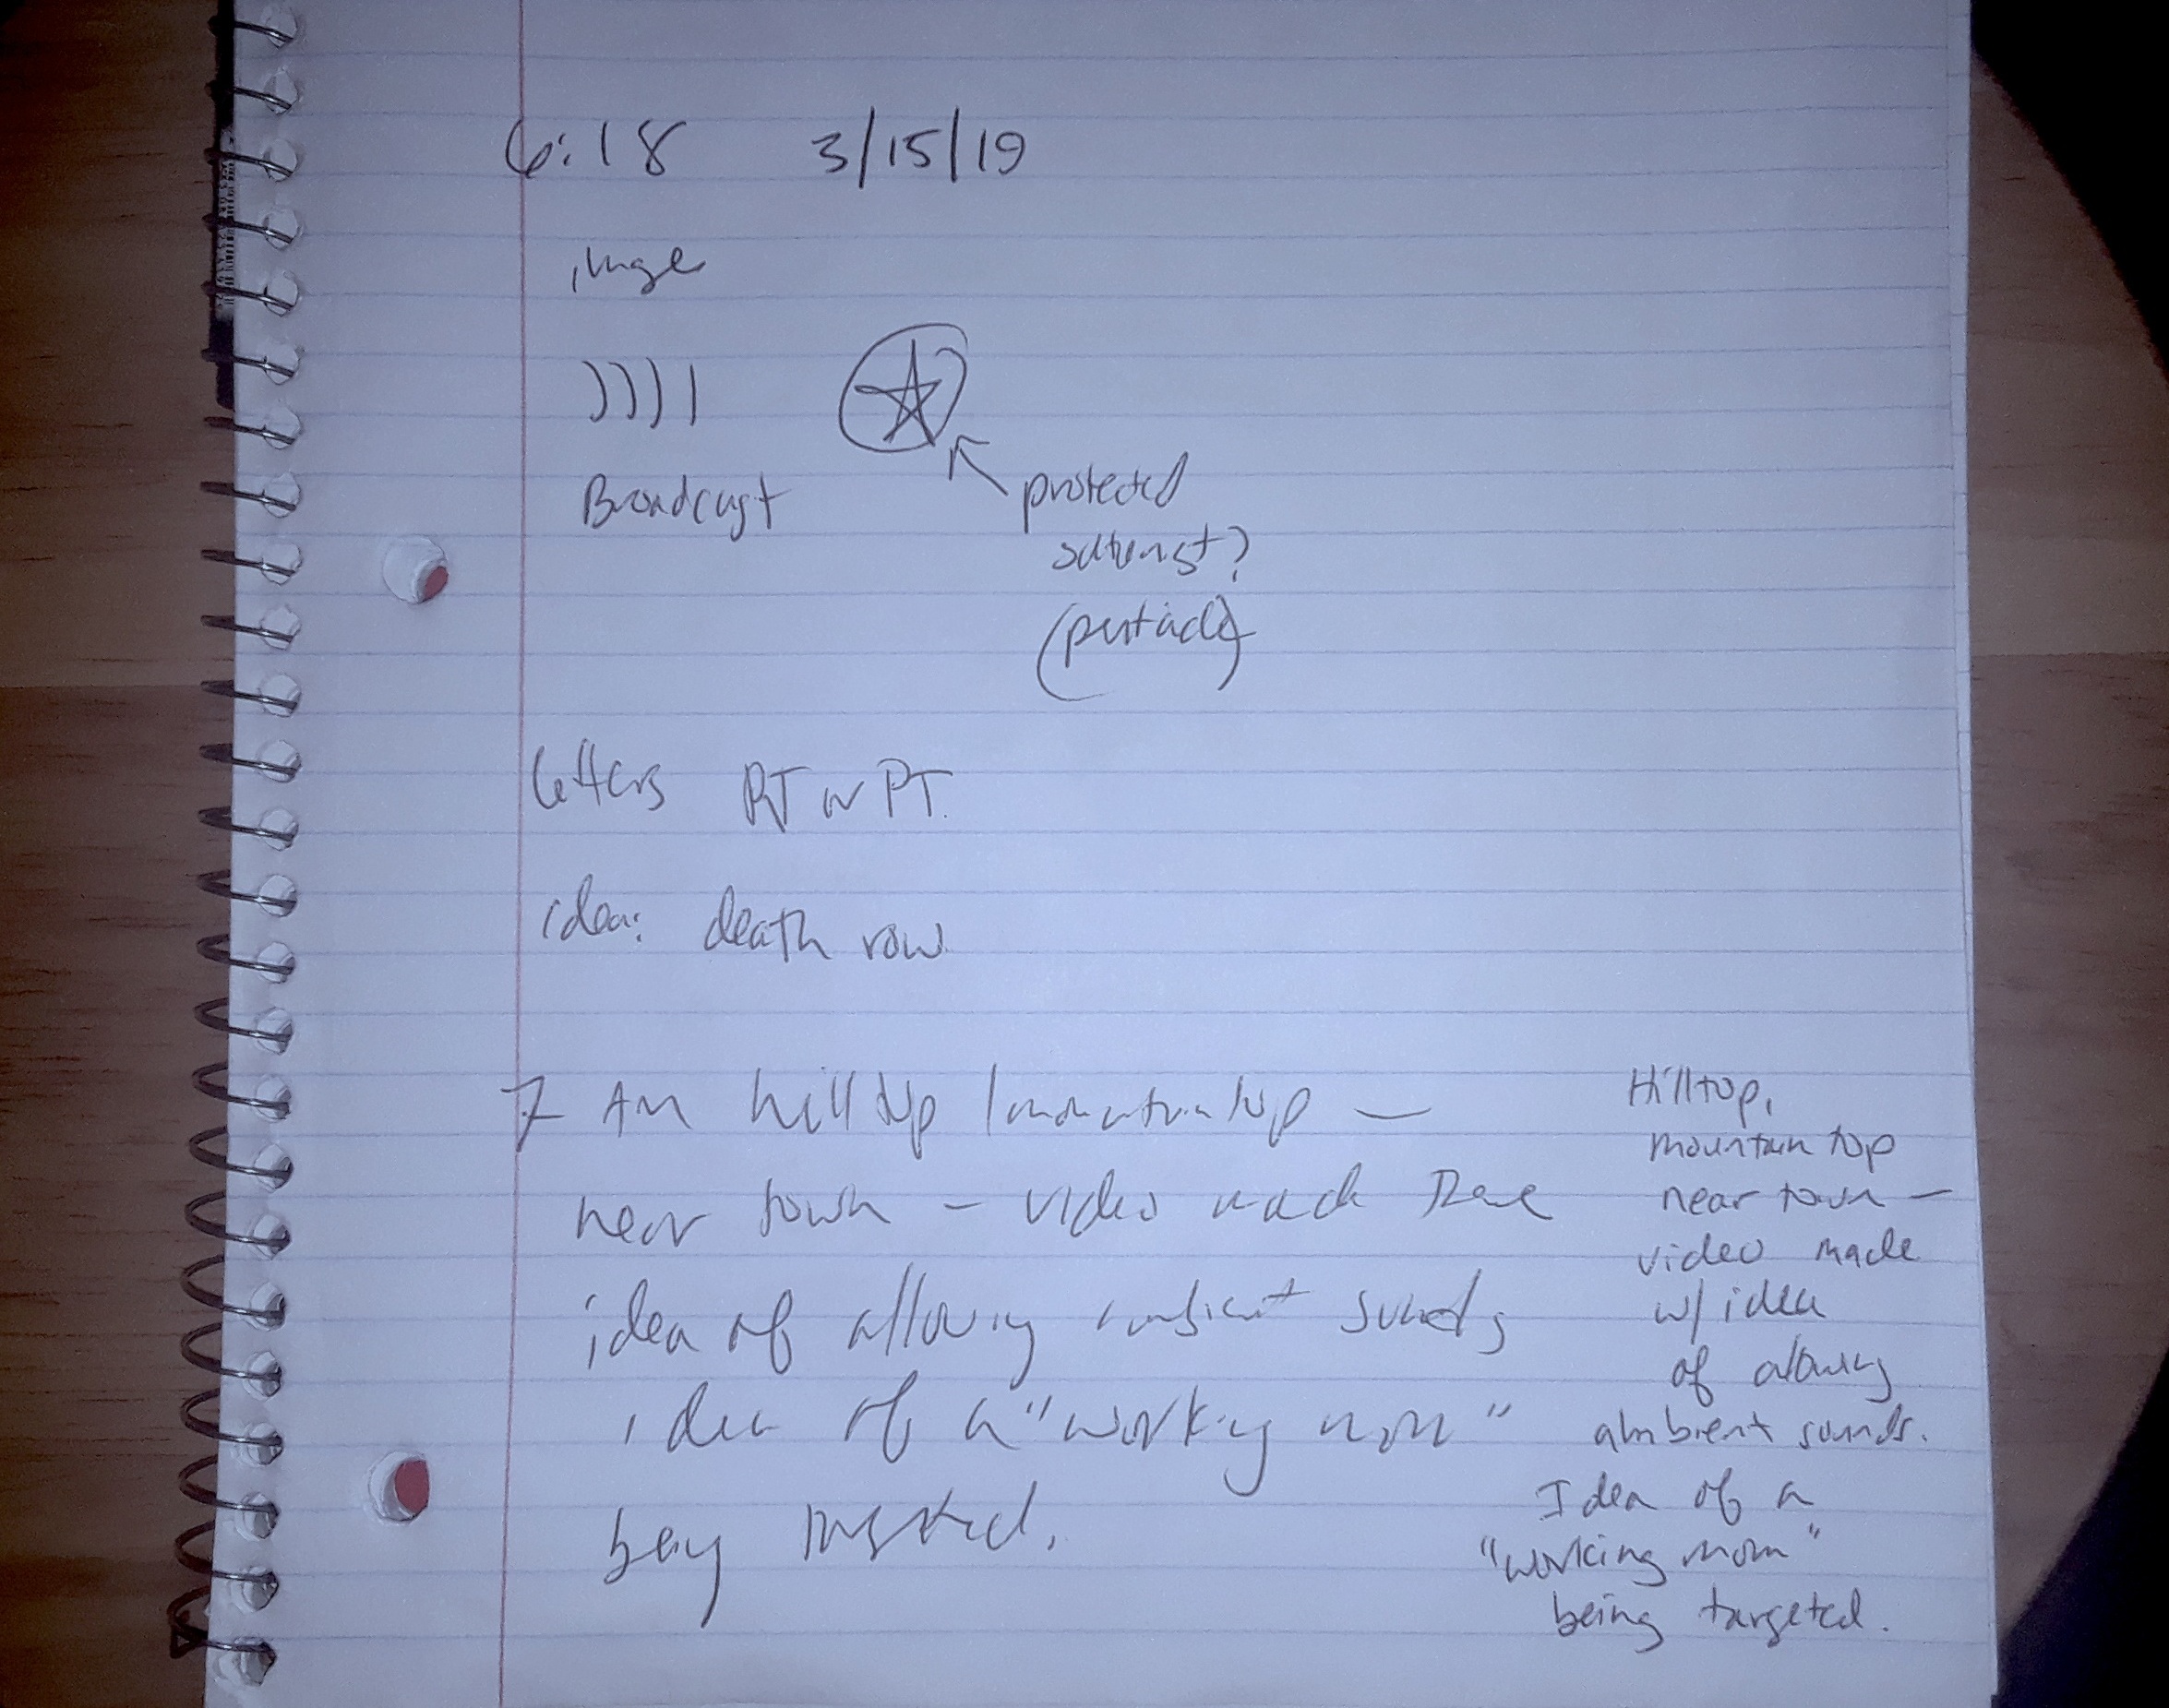 6:18 3/15/19
image
Broadcast
protected
satanist?
(pentacle)
letters RT or PT
idea: death row
7 AM hilltop / mountaintop —
near town – video made There
idea of allowing ambient sounds
idea of a "working mom"
being targeted.
Hilltop,
mountain top
near town —
video made
w/ idea
of allowing
ambient sounds.
Idea of a
"working mom"
being targeted.